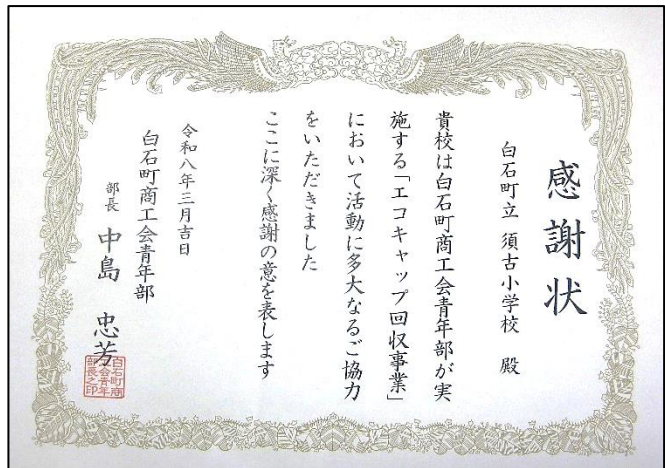 感謝状
白石町立 須古小学校 殿
貴校は白石町商工会青年部が実
施する「エコキャップ回収事業」
において活動に多大なるご協力
をいただきました
ここに深く感謝の意を表します
令和八年三月吉日
白石町商工会青年部
部長 中島 忠芳
白石町商
工会青年
部長之印